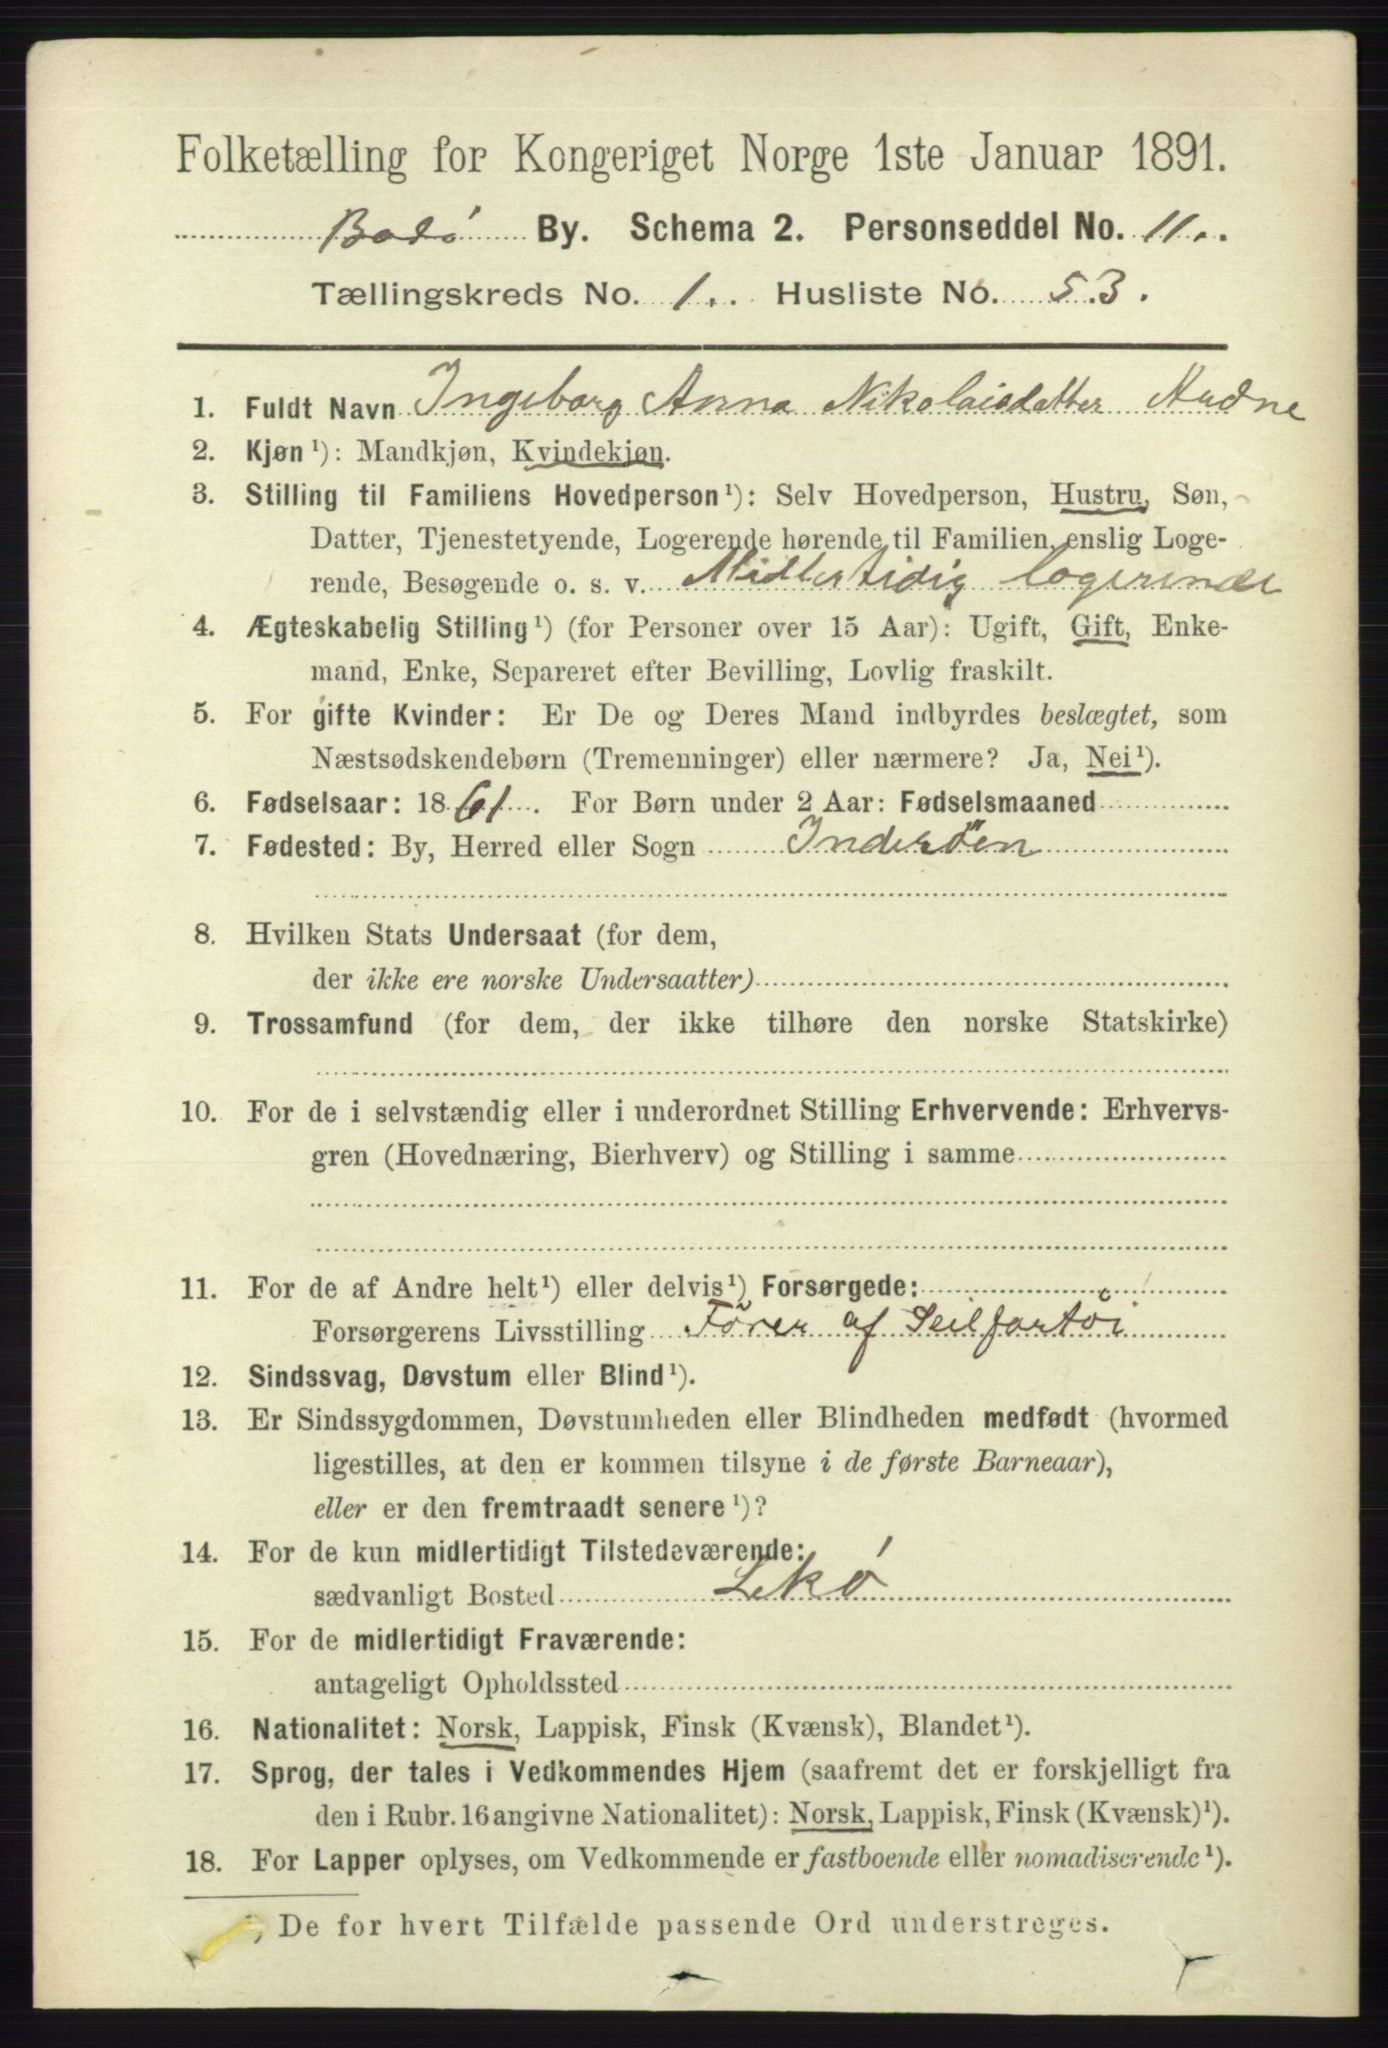 Folketælling for Kongeriget Norge 1ste Januar 1891.
Bodø By. Schema 2. Personseddel No. 11.
Tællingskreds No. 1. Husliste No. 53.
1. Fuldt Navn Ingeborg Anna Nikolaisdatter
2. Kjøn¹): Mandkjøn, Kvindekjøn.
3. Stilling til Familiens Hovedperson¹): Selv Hovedperson, Hustru, Søn,
Datter, Tjenestetyende, Logerende hørende til Familien, enslig Loge-
rende, Besøgende o. s. v. Midlertidig logerende
4. Ægteskabelig Stilling¹) (for Personer over 15 Aar): Ugift, Gift, Enke-
mand, Enke, Separeret efter Bevilling, Lovlig fraskilt.
5. For gifte Kvinder: Er De og Deres Mand indbyrdes beslægtet, som
Næstsødskendebørn (Tremenninger) eller nærmere? Ja, Nei¹).
6. Fødselsaar: 1861. For Børn under 2 Aar: Fødselsmaaned
7. Fødested: By, Herred eller Sogn Inderøen
8. Hvilken Stats Undersaat (for dem,
der ikke ere norske Undersaatter)
9. Trossamfund (for dem, der ikke tilhøre den norske Statskirke)
10. For de i selvstændig eller i underordnet Stilling Erhvervende: Erhvervs-
gren (Hovednæring, Bierhverv) og Stilling i samme
11. For de af Andre helt¹) eller delvis¹) Forsørgede:
Forsørgerens Livsstilling Fører af Seilfartøi
12. Sindssvag, Døvstum eller Blind¹).
13. Er Sindssygdommen, Døvstumheden eller Blindheden medfødt (hvormed
ligestilles, at den er kommen tilsyne i de første Barneaar),
eller er den fremtraadt senere¹)?
14. For de kun midlertidigt Tilstedeværende:
sædvanligt Bosted Lekø
15. For de midlertidigt Fraværende:
antageligt Opholdssted
16. Nationalitet: Norsk, Lappisk, Finsk (Kvænsk), Blandet¹).
17. Sprog, der tales i Vedkommendes Hjem (saafremt det er forskjelligt fra
den i Rubr. 16 angivne Nationalitet): Norsk, Lappisk, Finsk (Kvænsk)¹).
18. For Lapper oplyses, om Vedkommende er fastboende eller nomadiserende¹).
¹) De for hvert Tilfælde passende Ord understreges.